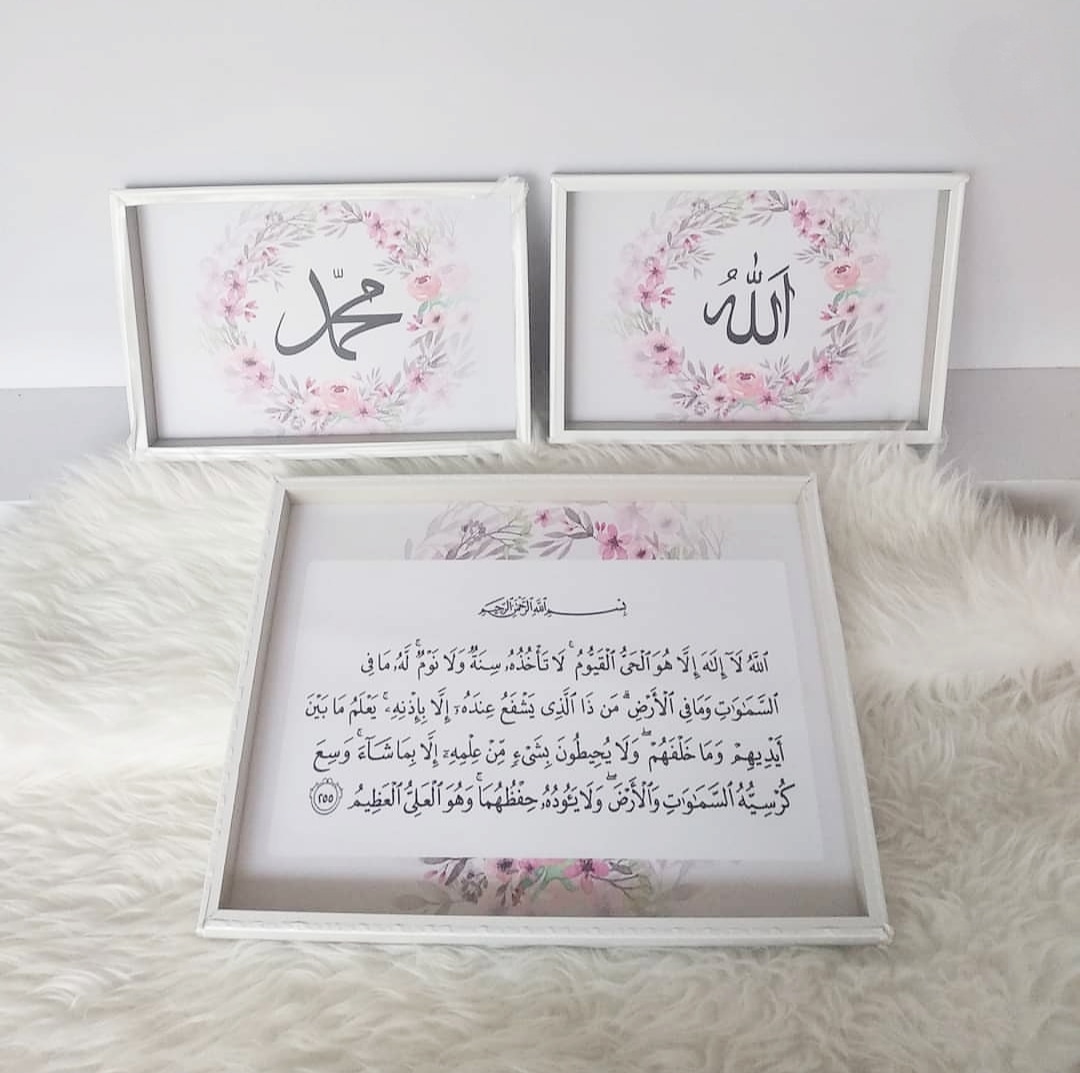 محمّد
اَللّٰهُ
بِسْمِ ٱللَّهِ ٱلرَّحْمَٰنِ ٱلرَّحِيمِ
ٱللَّهُ لَآ إِلَٰهَ إِلَّا هُوَ ٱلْحَىُّ ٱلْقَيُّومُ ۚ لَا تَأْخُذُهُۥ سِنَةٌ وَلَا نَوْمٌ ۚ لَّهُۥ مَا فِى
ٱلسَّمَٰوَٰتِ وَمَا فِى ٱلْأَرْضِ ۗ مَن ذَا ٱلَّذِى يَشْفَعُ عِندَهُۥٓ إِلَّا بِإِذْنِهِۦ ۚ يَعْلَمُ مَا بَيْنَ
أَيْدِيهِمْ وَمَا خَلْفَهُمْ ۖ وَلَا يُحِيطُونَ بِشَىْءٍ مِّنْ عِلْمِهِۦٓ إِلَّا بِمَا شَآءَ ۚ وَسِعَ
كُرْسِيُّهُ ٱلسَّمَٰوَٰتِ وَٱلْأَرْضَ ۖ وَلَا يَـُٔودُهُۥ حِفْظُهُمَا ۚ وَهُوَ ٱلْعَلِىُّ ٱلْعَظِيمُ ٢٥٥